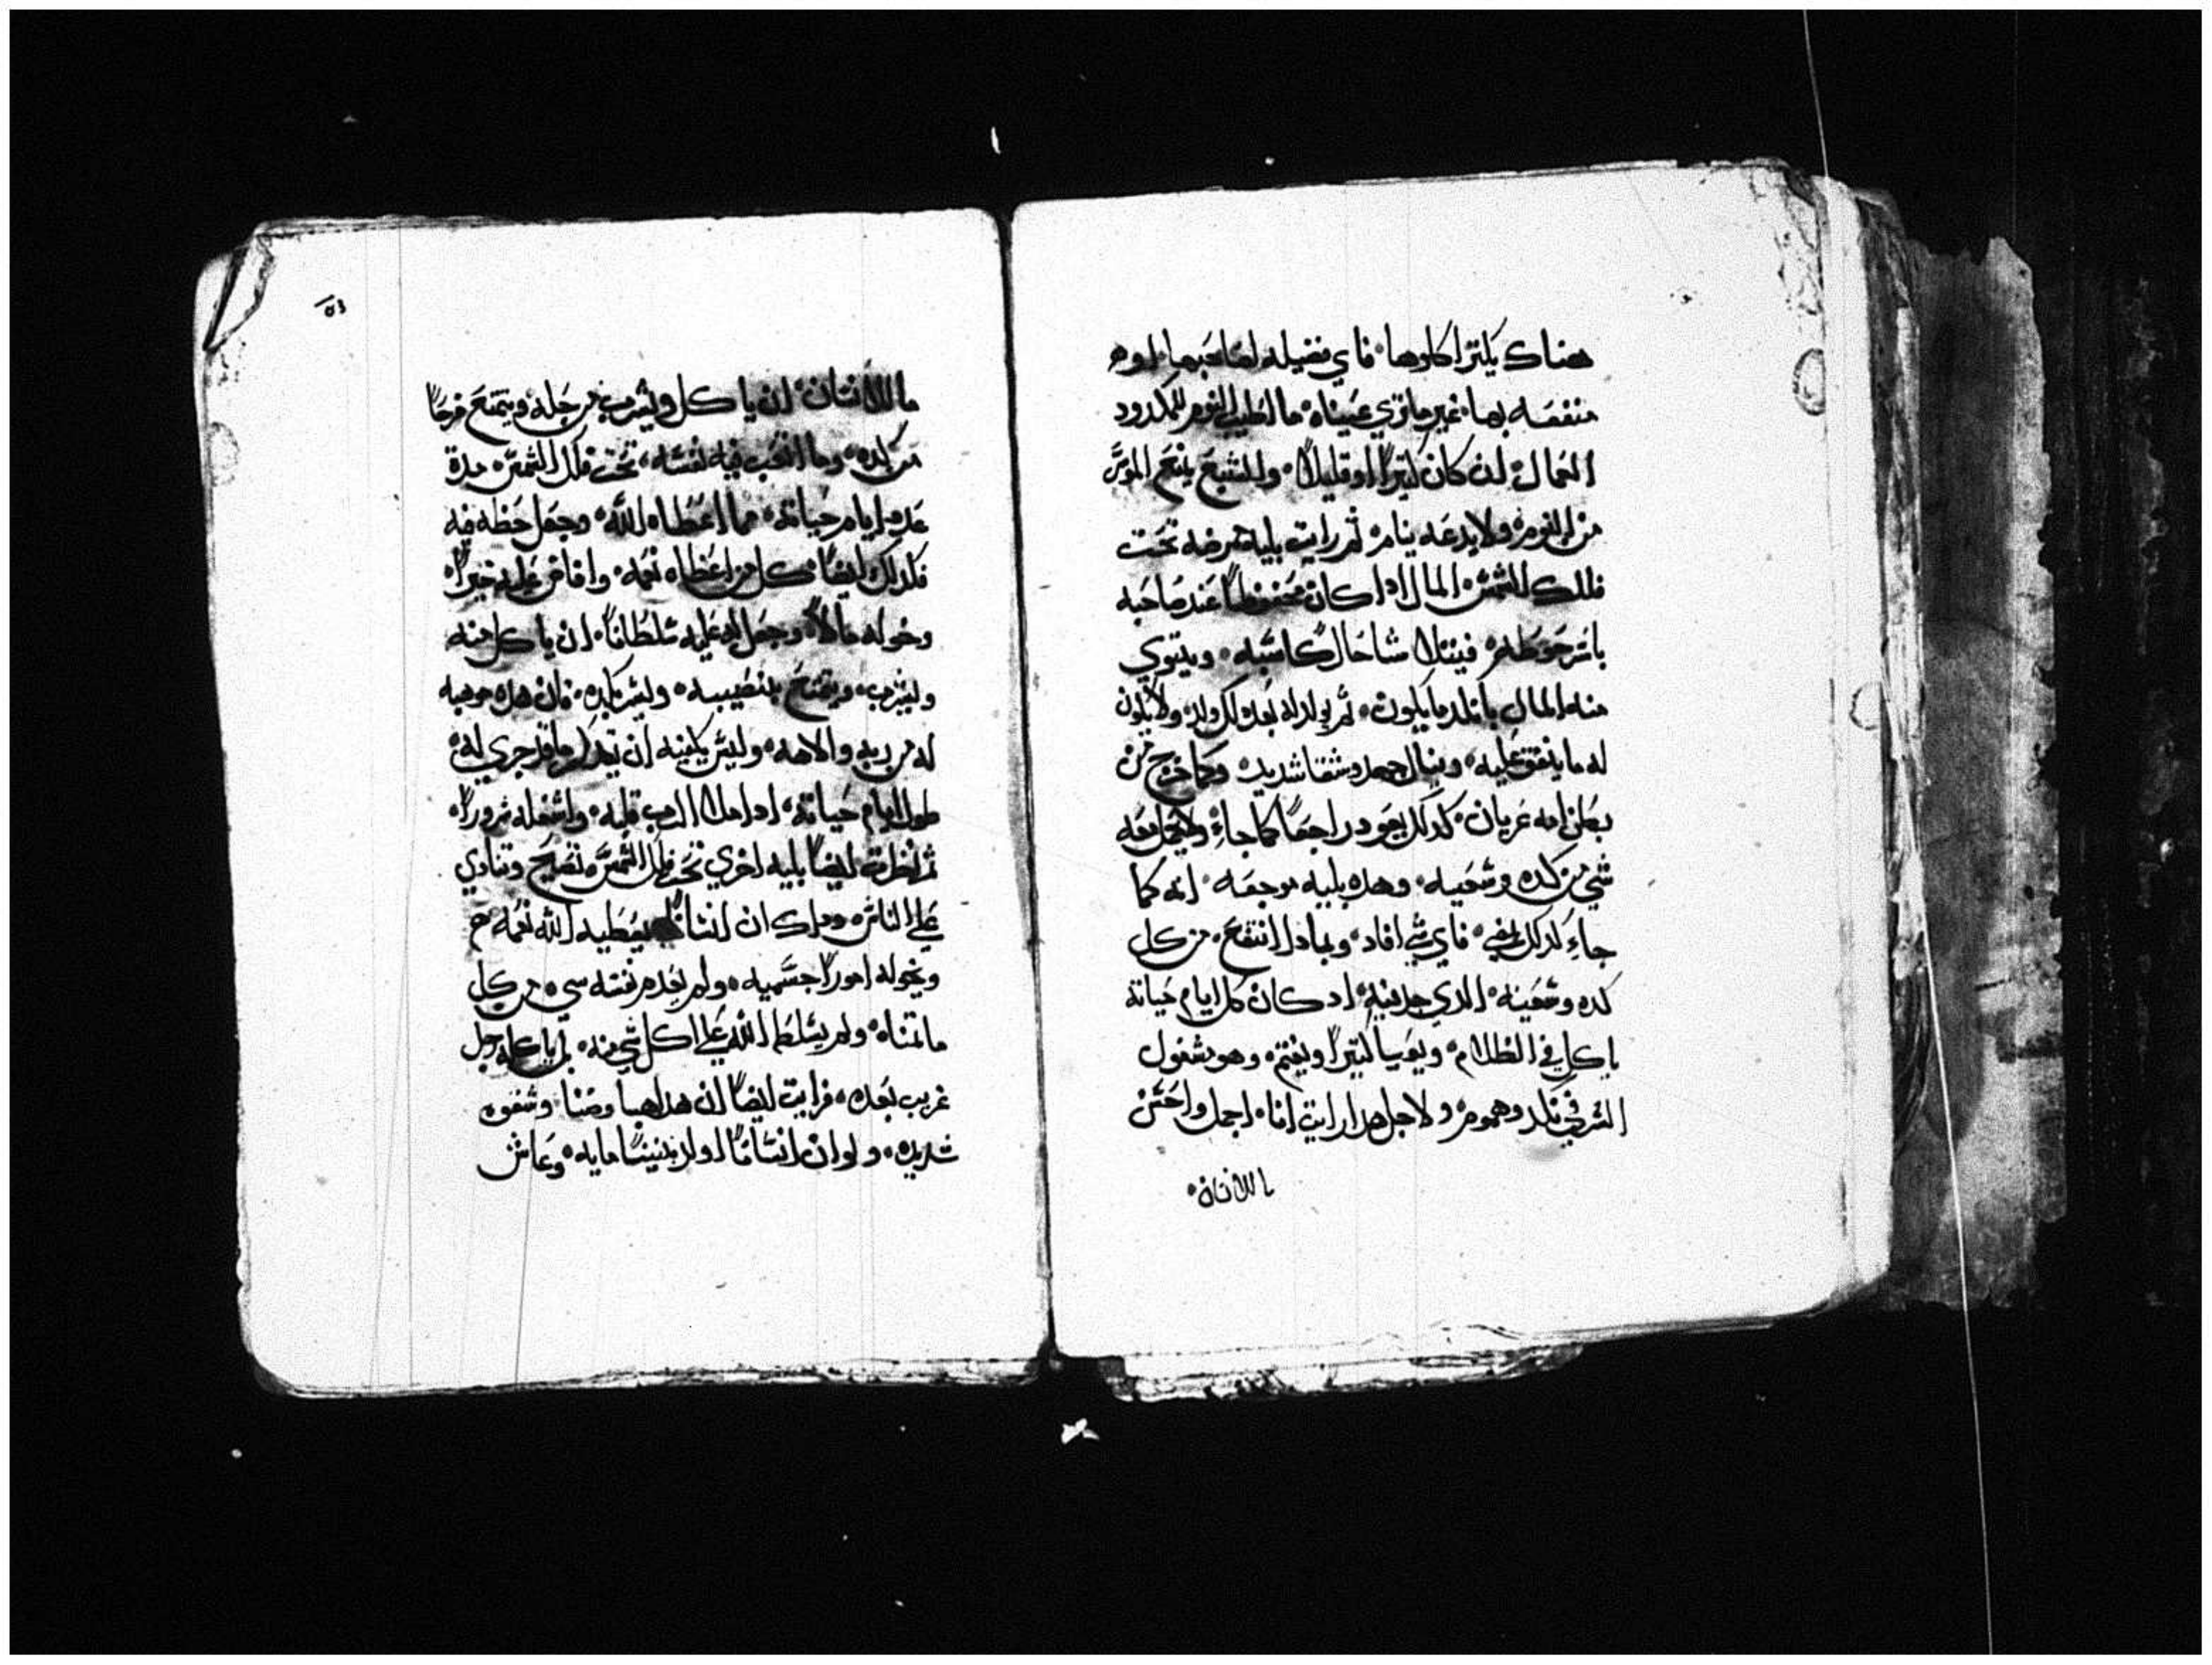 هناك يكتر اكلوها فاي فضيله لصاحبها اوم
منفعه بها غير ما تري عيناه ما اطيب النوم للمكدود
العمال ان كان كتيراً او قليلاً والشبع يمنع الموسر
من النوم ولا يدعه ينام تم رايت بليه مرضه تحت
فلك الشمس المال ادا كان محفوظاً عند صاحبه
باشر حوطه فيبتلا شاحال كاسبه ويتوي
منه المال بانكد ما يكون تم يولد له بعد دلك ولد ولا يكون
له ما ينفق عليه وينال جهد وشقا شديد وكما خرج من
بطن امه عريان كدلك يعود راجعاً كما جاءَ ولا يحمل معه
شي من كده وشعيه وهده بليه موجعه انه كما
جاءَ كدلك يمضي فاي شي افاد وبمادا انتفع من كل
كده وشعيه الدي جد فيه اد كان كل ايام حياته
ياكل في الظلام ويعيا كتيراً ويغتم وهو مشغول
الشر في نكد وهموم ولاجل هدا رايت انا اجمل واحسن
ما للانسان
ما للانسان ان ياكل ويشرب من جله ويتمتع فرحاً
من كده وما اتعب فيه نفسه تحت فلك الشمس مدة
عدد ايام حياته مما اعطاه الله وجعل حظه فيه
فكدلك ايضاً كل من اعطاه نعمه وافاض عليه خيراً
وخوله مالاً وجعل له عليه سلطاناً ان ياكل منه
وليشرب ويتمتع بنصيبه وليسر بكده فان هده موهبه
له من ربه والاهه وليس يكفيه ان يتدكر ما قد جري له
طول ايام حياته ادا ملا الرب قلبه واشغله سروراً
تم نظرت ايضاً بليه اخري تحت فلك الشمس تصيح وتنادي
علي الناس ودلك ان انساناً يعطيه الله نعمه
ويخوله اموراً جسميه ولم يعدم نفسه شي من كل
ما تمناه ولم يسلطه الله علي اكل شي منه بل ياكله رجل
غريب بعده فرايت ايضاً ان هدا هبا وضنا وشقوه
شديده ولو ان انساناً اولد بنيناً مايه وعاش